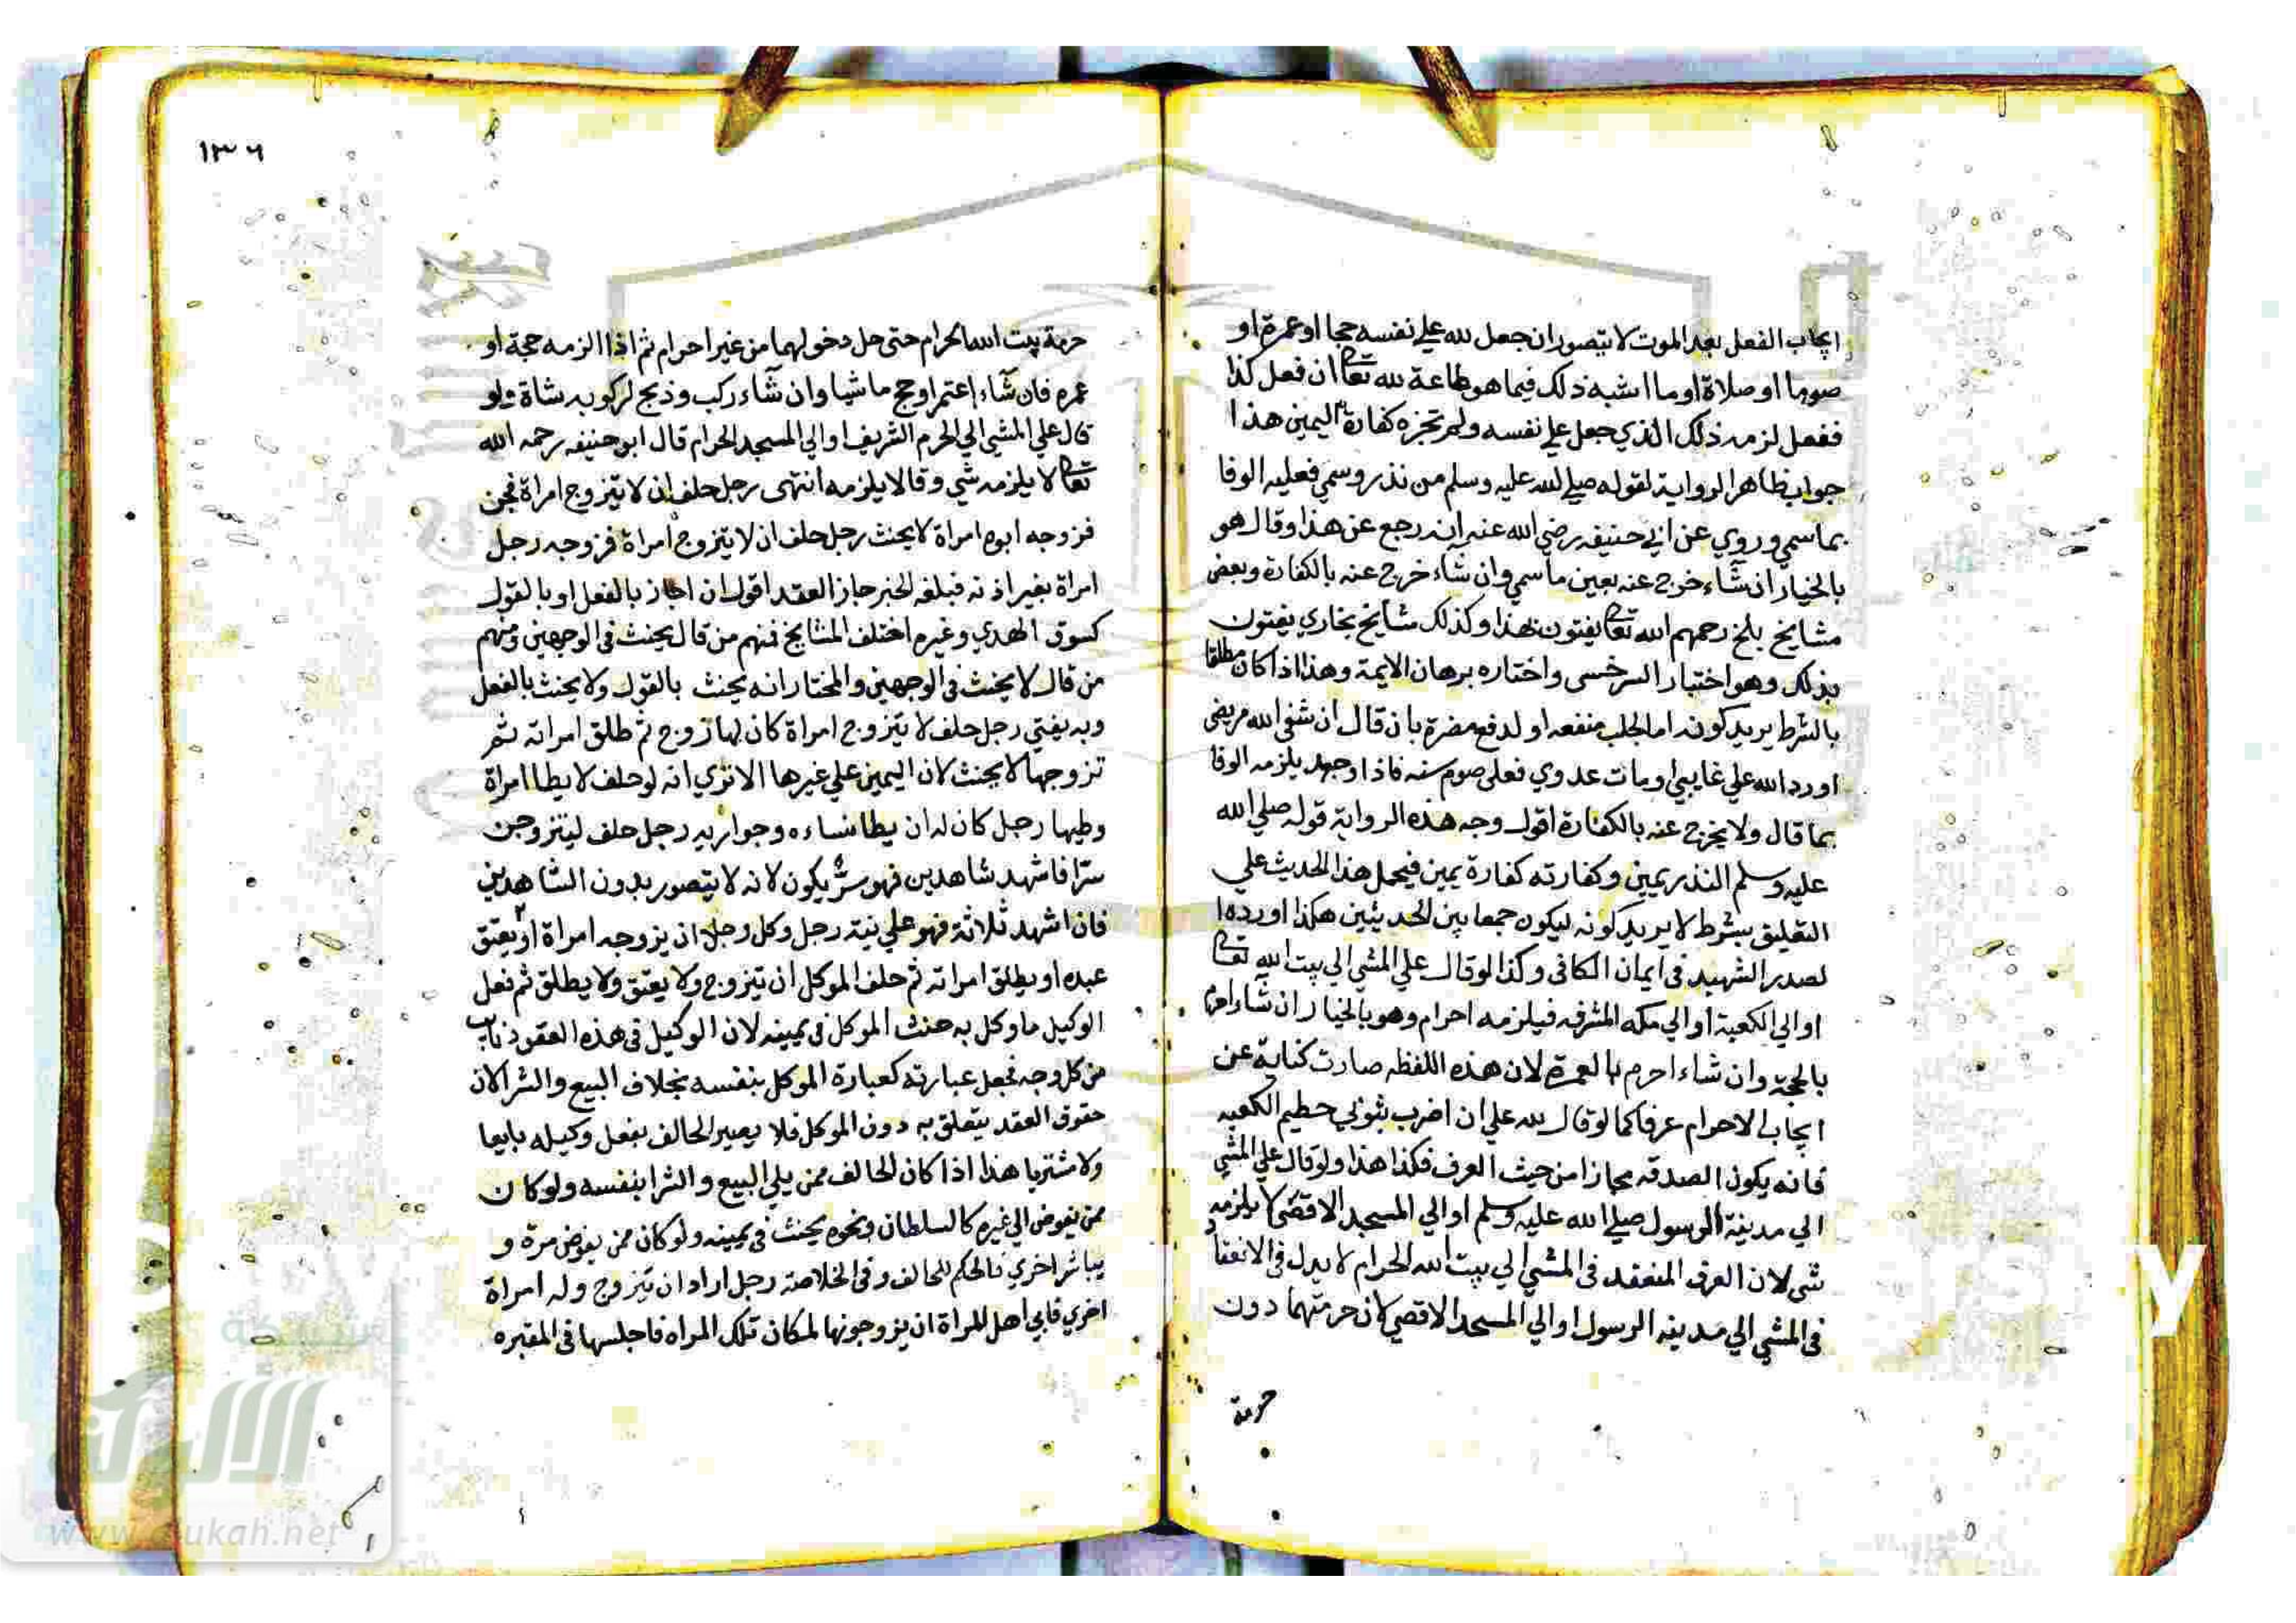 ايجاب الفعل بعد الموت لا يتصور ان جعل لله علي نفسه حجا او عمرة او
صوما او صلاة او ما اشبه ذلك فيما هو طاعة لله تعا ان فعل كذا
ففعل لزمه ذلك الذي جعل علي نفسه ولم تجزه كفارة اليمين هذا
جواب ظاهر الرواية لقوله صلي الله عليه وسلم من نذر وسمي فعليه الوفا
بما سمي وروي عن ابي حنيفه رضي الله عنه انه رجع عن هذا وقال هو
بالخيار ان شآء خرج عنه بعين ما سمي وان شاء خرج عنه بالكفارة وبعض
مشايخ بلخ رحمهم الله تعا يفتون بهذا وكذلك مشايخ بخاري يفتون
بذلك وهو اختيار السرخسى واختاره برهان الايمة وهذا اذا كان مطلقا
بالشرط يريد كونه اما لجلب منفعه او لدفع مضرة بان قال ان شفي الله مريضي
او رد الله علي غايبي او مات عدوي فعلى صوم سنه فاذا وجد يلزمه الوفا
بما قال ولا يخرج عنه بالكفارة اقول وجه هذه الرواية قوله صلي الله
عليه وسلم النذر يمين وكفارته كفارة يمين فيحمل هذا الحديث علي
التعليق بشرط لا يريد كونه ليكون جمعا بين الحديثين هكذا اورده ا
لصدر الشهيد فى ايمان الكافى وكذا لو قال علي المشي الي بيت الله تعا
او الي الكعبة او الي مكه المشرفه فيلزمه احرام وهو بالخيار ان شآء احرم
بالحجة وان شاء احرم بالعمرة لان هذه اللفظه صارت كناية عن
ايجاب الاحرام عرفا كما لو قال لله علي ان اضرب بثوبي حطيم الكعبه
فانه يكون الصدقه مجازا من حيث العرف فكذا هذا ولو قال علي المشي
الي مدينة الرسول صلي الله عليه وسلم او الي المسجد الاقصى لا يلزمه
شى لان العرف المنعقد فى المشي الي بيت الله الحرام لا يدل في الانعقاد
فى المشي الي مدينه الرسول او الي المسجد الاقصي لان حرمتهما دون
حرمة
١٣٦
حرمة بيت الله الحرام حتى حل دخولهما من غير احرام ثم اذا الزمه حجة او
عمره فان شآء اعتمر او حج ماشيا وان شآء ركب وذبح لركوبه شاة ولو
قال علي المشي الي الحرم الشريف او الي المسجد الحرام قال ابو حنيفه رحمه الله
تعا لا يلزمه شي وقالا يلزمه انتهى رجل حلف ان لا يتزوج امراة فجن
فزوجه ابوه امراة لا يحنث رجل حلف ان لا يتزوج امراة فزوجه رجل
امراة بغير اذنه فبلغه الخبر جاز العقد اقول ان اجاز بالفعل او بالقول
كسوق الهدي وغيره اختلف المشايخ فمنهم من قال يحنث فى الوجهين ومنهم
من قال لا يحنث فى الوجهين والمختار انه يحنث بالقول ولا يحنث بالفعل
وبه يفتي رجل حلف لا يتزوج امراة كان لها زوج ثم طلق امراته ثم
تزوجها لا يحنث لان اليمين علي غيرها الا تري انه لو حلف لا يطا امراة
وطيها رجل كان له ان يطا نساءه وجواريه رجل حلف ليتزوجن
سرا فاشهد شاهدين فهو سر يكون لانه لا يتصور بدون الشاهدين
فان اشهد ثلاثة فهو علي نية رجل وكل رجل ان يزوجه امراة او يعتق
عبده او يطلق امراته ثم حلف الموكل ان يتزوج ولا يعتق ولا يطلق ثم فعل
الوكيل ما وكل به حنث الموكل فى يمينه لان الوكيل فى هذه العقود نايب
من كل وجه فجعل عبارته كعبارة الموكل بنفسه بخلاف البيع والشرا لان
حقوق العقد يتعلق به دون الموكل فلا يصير الحالف بفعل وكيله بايعا
ولا مشتريا هذا اذا كان الحالف ممن يلي البيع والشرا بنفسه ولو كان
ممن يفوض الي غيره كالسلطان ونحوه يحنث فى يمينه ولو كان ممن يفوض مرة و
يباشر اخري فالحكم للحالف وفى الخلاصة رجل اراد ان يتزوج وله امراة
اخري فابي اهل المراة ان يزوجونها لمكان تلك المراه فاجلسها فى المقبره
شبكة
الألوكة
www.alukah.net